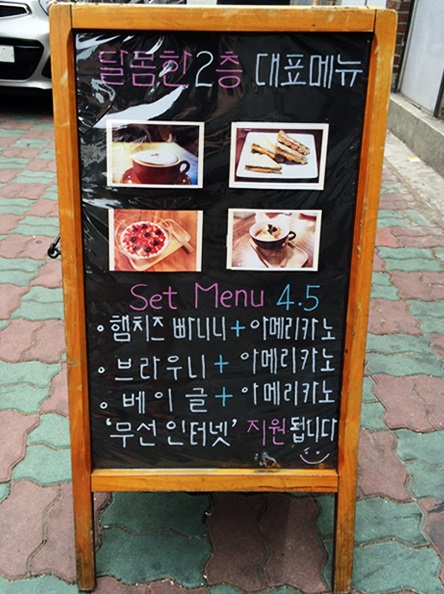 달콤한 2층 대표메뉴
Set Menu 4.5
• 햄치즈 빠니니 + 아메리카노
• 브라우니 + 아메리카노
• 베이글 + 아메리카노
'무선 인터넷' 지원 됩니다